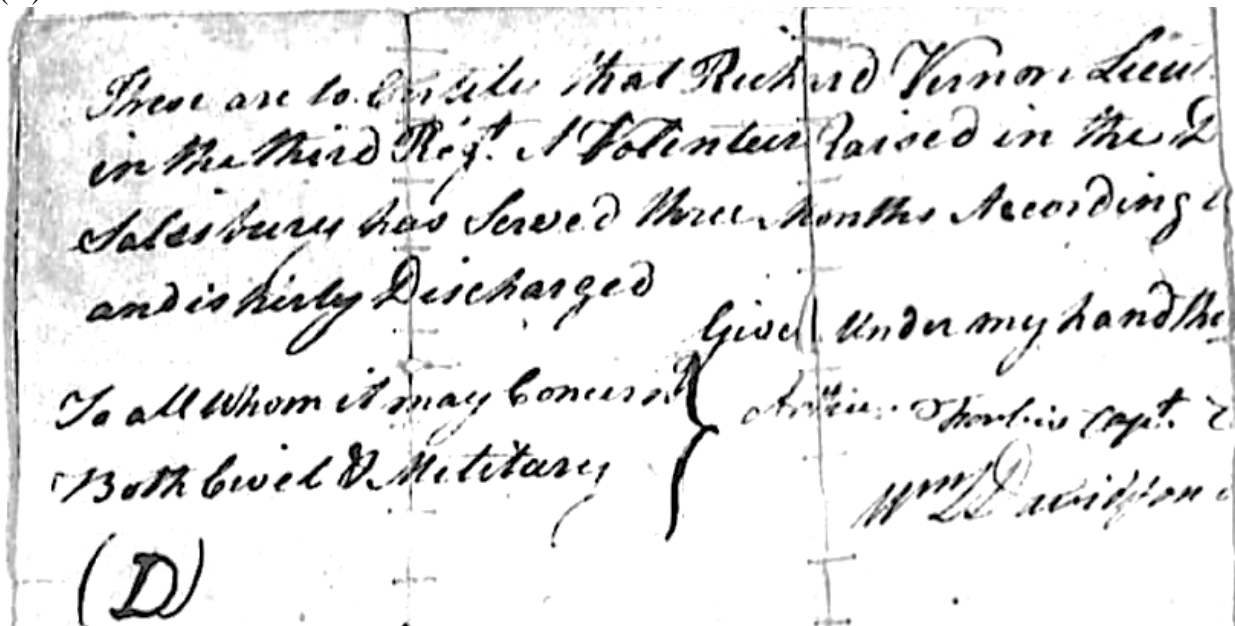 These are to Certify that Richard Vernon Lieut
in the third Regt. of Volenteer Raised in the
Salesbury has Served three Months According
and is hirby Discharged
Given Under my hand the
To all Whom it may Concern
Capt.
Both Civel & Military
Wm L Davidson
(D)